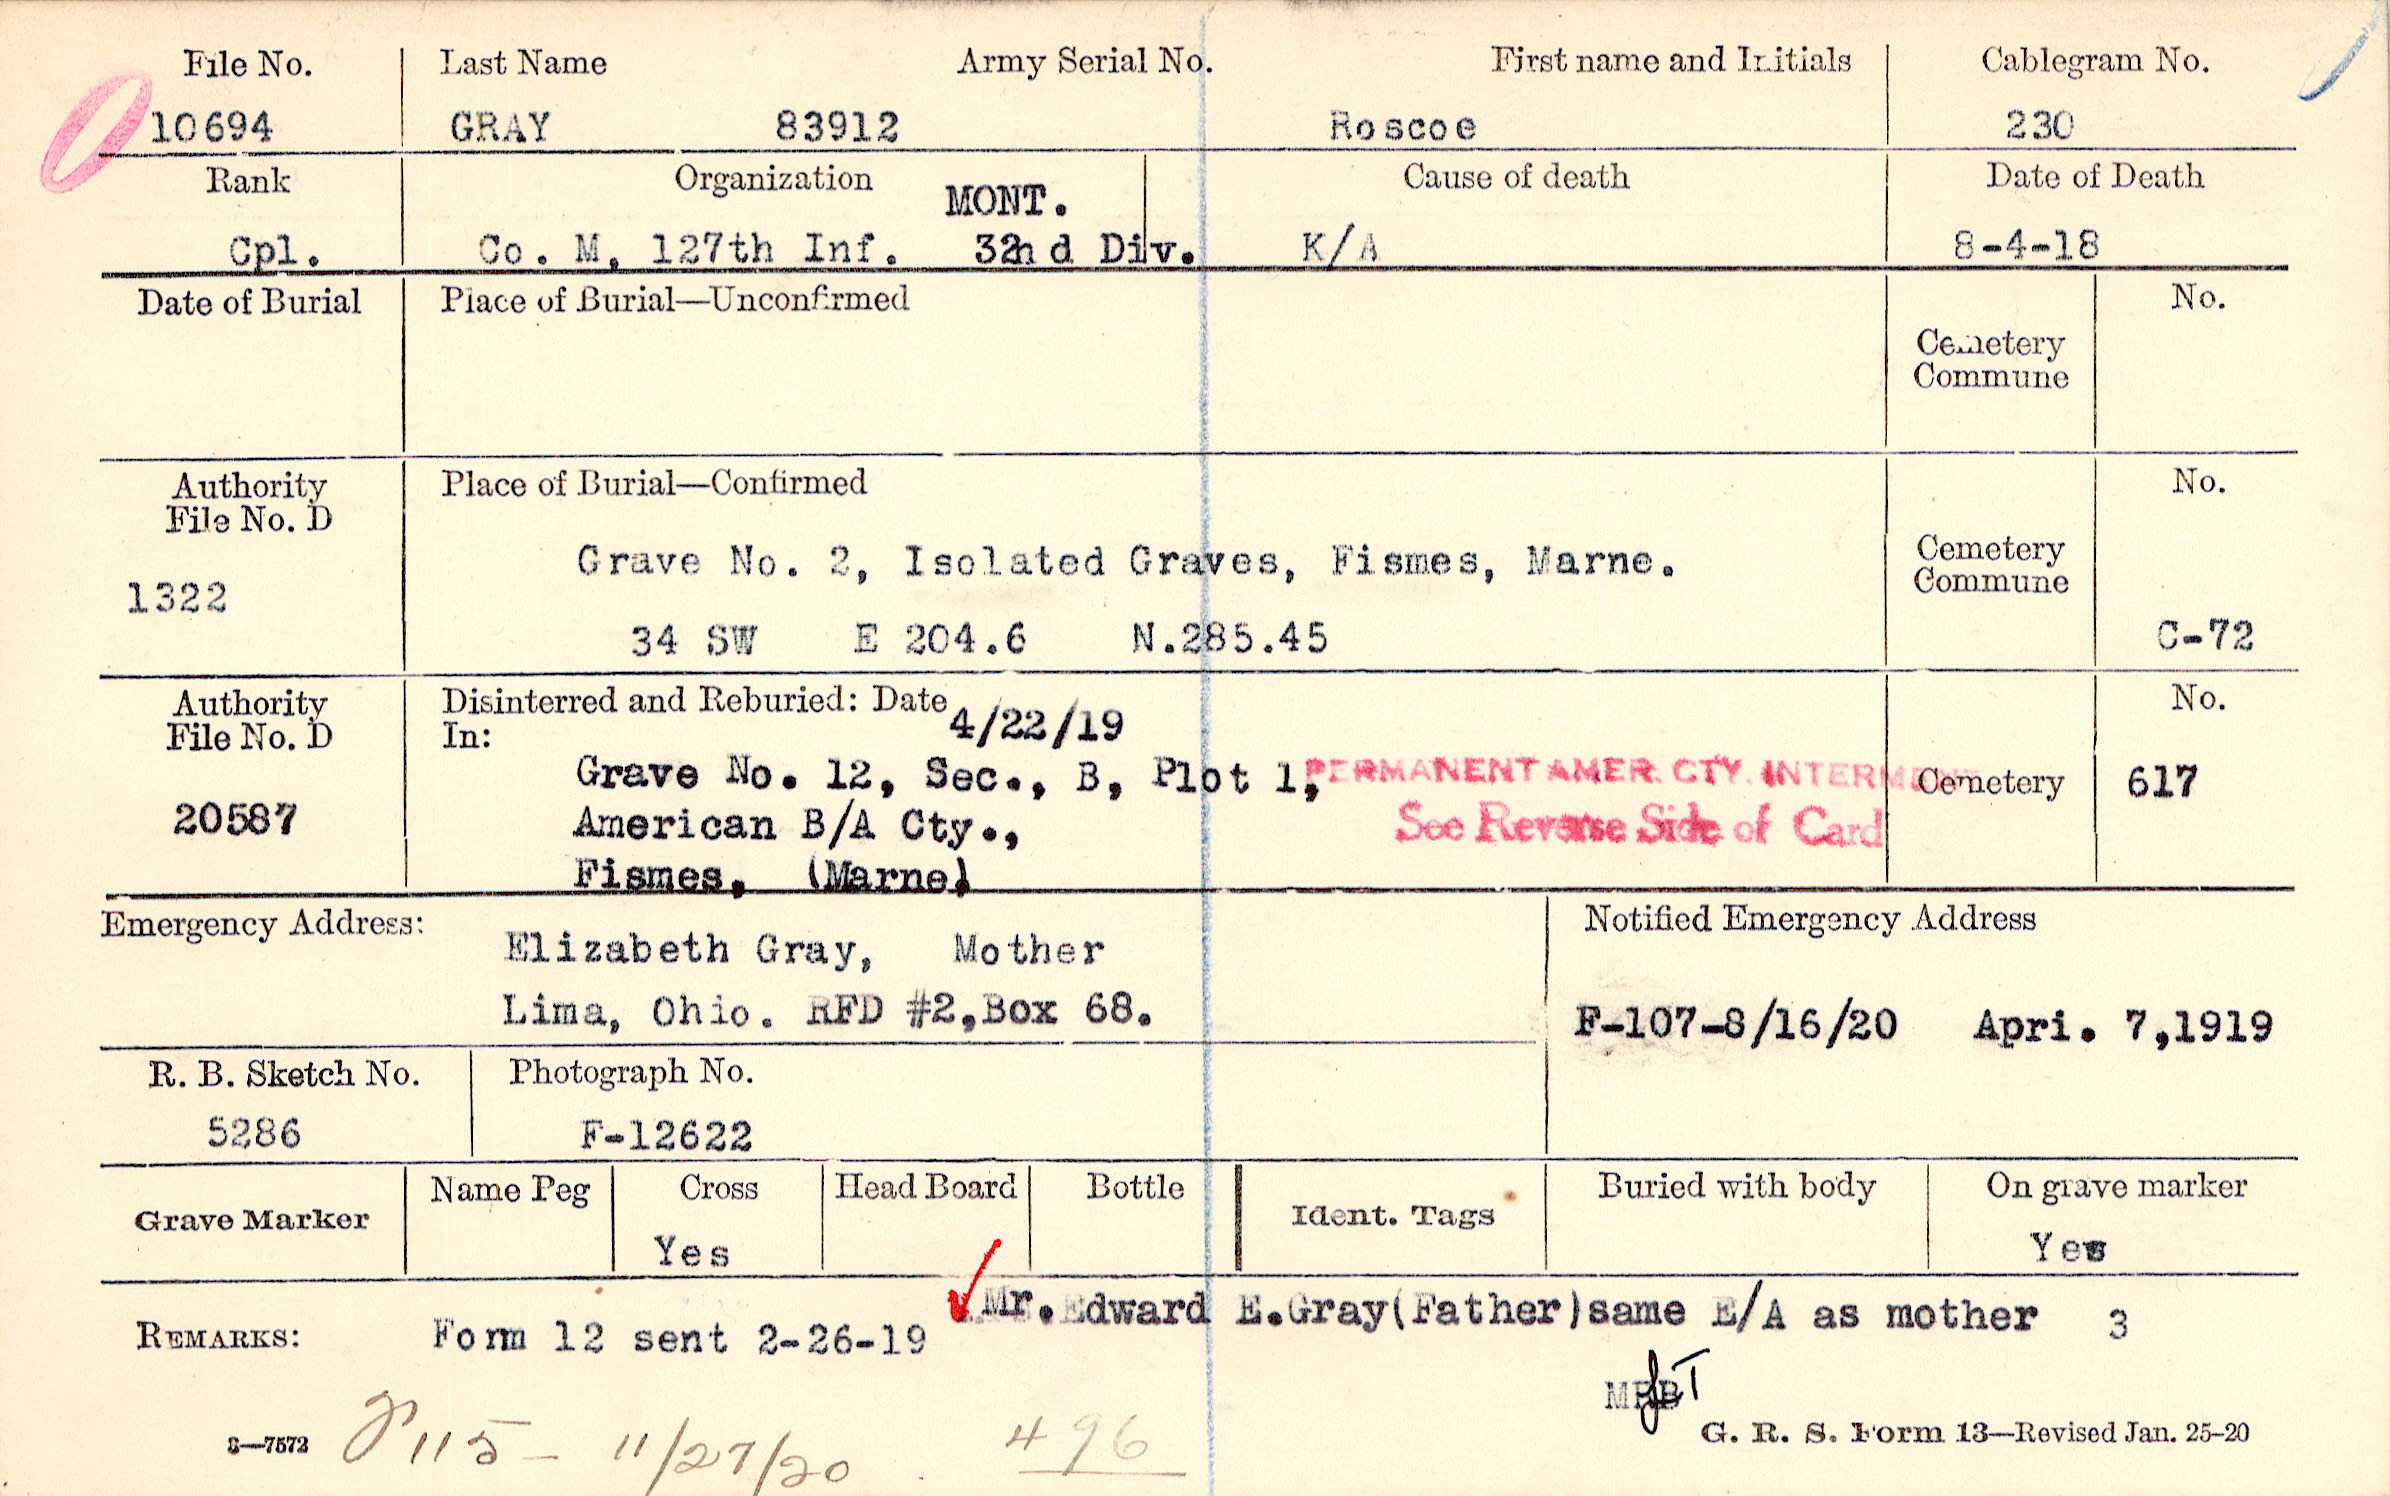 File No. Last Name Army Serial No. First name and Initials Cablegram No.
10694 GRAY 83912 Roscoe 230
Rank Organization Cause of death Date of Death
MONT.
Cpl. Co. M, 127th Inf. 32nd Div. K/A 8-4-18
Date of Burial Place of Burial—Unconfirmed No.
Cemetery
Commune
Authority Place of Burial—Confirmed No.
File No. D
Grave No. 2, Isolated Graves, Fismes, Marne. Cemetery
1322 Commune
34 SW E 204.6 N.285.45 C-72
Authority Disinterred and Reburied: Date 4/22/19 No.
File No. D In:
Grave No. 12, Sec., B, Plot 1, PERMANENT AMER. CTY. INTERMENT Cemetery 617
20587 American B/A Cty., See Reverse Side of Card
Fismes, (Marne)
Emergency Address: Notified Emergency Address
Elizabeth Gray, Mother
Lima, Ohio. RFD #2,Box 68. F-107-8/16/20 Apri. 7,1919
R. B. Sketch No. Photograph No.
5286 F-12622
Grave Marker Name Peg Cross Head Board Bottle Ident. Tags Buried with body On grave marker
Yes Yes
Mr. Edward E.Gray(Father)same E/A as mother 3
REMARKS: Form 12 sent 2-26-19
115 - 11/27/20 496
8—7572 G. R. S. Form 13—Revised Jan. 25-20